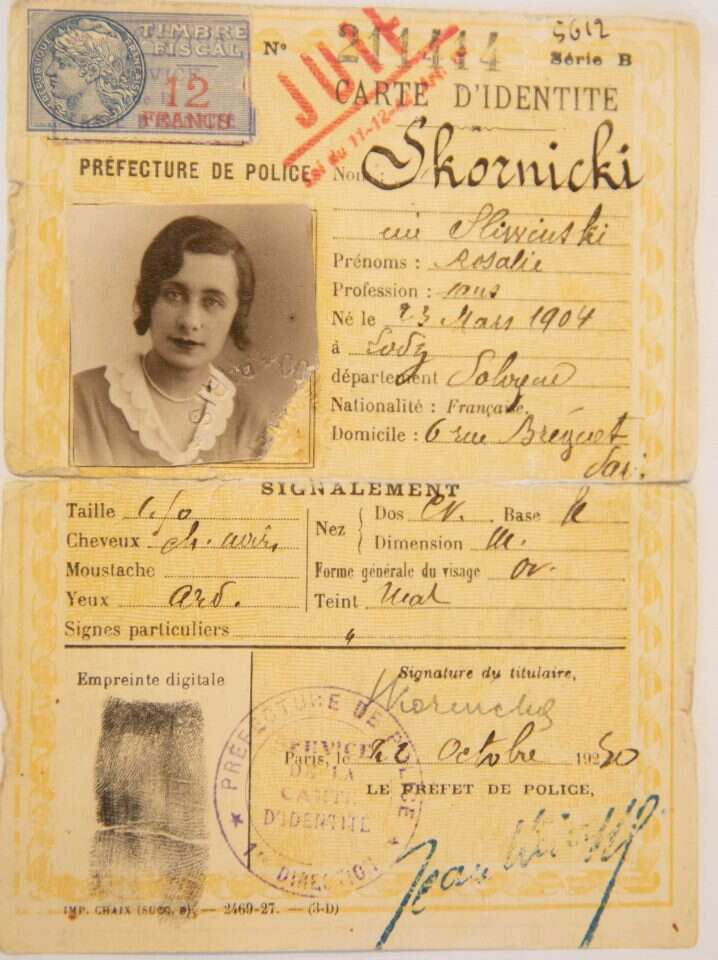 RÉPUBLIQUE
TIMBRE
FISCAL
12
FRANCS
N° 211414
5612
Série B
JUIVE
Loi du 11-12-42
CARTE D'IDENTITE
PRÉFECTURE DE POLICE
Nom: Skornicki
Prénoms : Rosalie
Profession : sans
Né le 23 Mars 1904
à Lodz
département Pologne
Nationalité : Française.
Domicile : 6 rue Bréguet
SIGNALEMENT
Taille
Nez
Dos
Base
Cheveux ch. noirs
Dimension m.
Moustache
Forme générale du visage ov.
Yeux ard.
Teint Mat
Signes particuliers
Empreinte digitale
Signature du titulaire,
PRÉFECTURE DE POLICE
SERVICE
DE LA
CARTE
D'IDENTITÉ
DIRECTION
Paris, le 22 Octobre 1930
LE PREFET DE POLICE,
IMP. CHAIX (SUCC. B). — 2469-27. — (3-D)